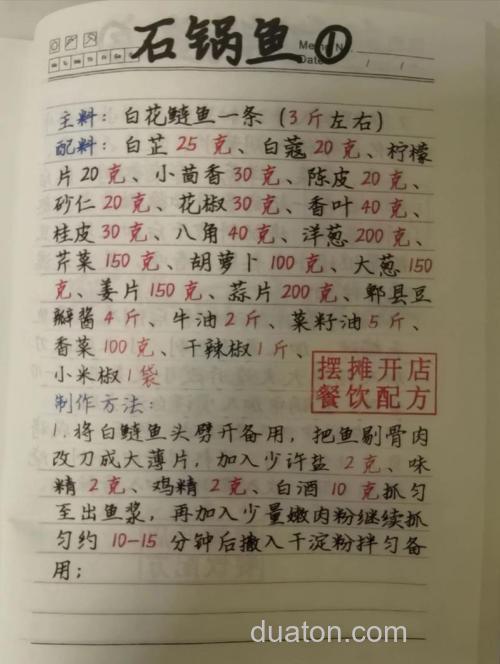 石锅鱼①
Memo No.
Mo Tu We Th Fr Sa Su
Date / /
主料：白花鲢鱼一条（3斤左右）
配料：白芷25克、白蔻20克、柠檬
片20克、小茴香30克、陈皮20克、
砂仁20克、花椒30克、香叶40克、
桂皮30克、八角40克、洋葱200克、
芹菜150克、胡萝卜100克、大葱150
克、姜片150克、蒜片200克、郫县豆
瓣酱4斤、牛油2斤、菜籽油5斤、
香菜100克、干辣椒1斤、
小米椒1袋
摆摊开店
餐饮配方
制作方法：
1.将白鲢鱼头劈开备用，把鱼剔骨肉
改刀成大薄片，加入少许盐2克、味
精2克、鸡精2克、白酒10克抓匀
至出鱼浆，再加入少量嫩肉粉继续抓
匀约10-15分钟后撒入干淀粉拌匀备
用；
duaton.com